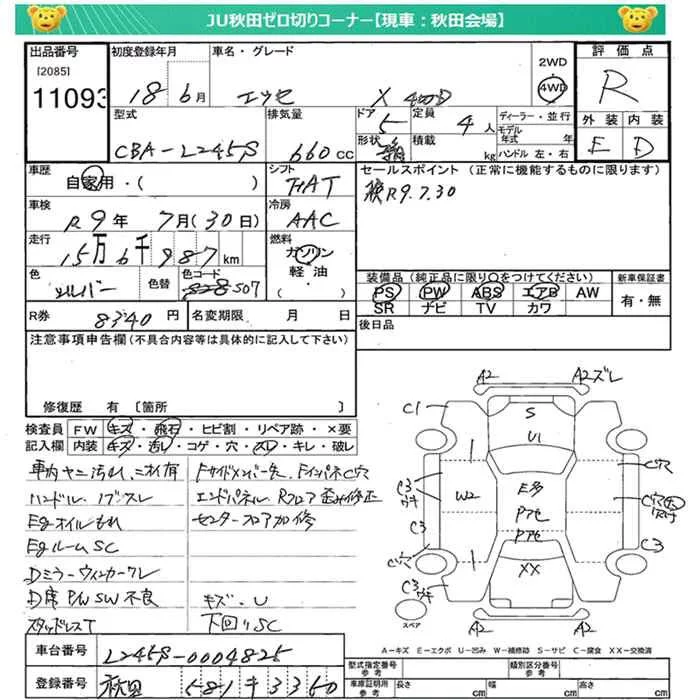 JU秋田ゼロ切りコーナー【現車：秋田会場】
出品番号 初度登録年月 車名・グレード 2WD 評価点
[2085] 11093 18 6月 エッセ X 4WD 4WD R
型式 排気量 ドア 定員 ディーラー・並行 外装 内装
CBA-L245S 660cc 5 4人 モデル年式 年 E D
形状 積載 kg ハンドル 左・右
車歴 シフト セールスポイント (正常に機能するものに限ります)
自家用・( ) FAT 検R9.7.30
車検 冷房
R9年 7月(30日) AAC
走行 燃料
15万6千987km ガソリン
色 色替 色コード 軽油 装備品 (純正品に限り○をつけてください) 新車保証書
シルバー S28 S07 ・( ) PS PW ABS エアB AW 有・無
SR ナビ TV カワ
R券 8340円 名変期限 月 日 後日品
注意事項申告欄(不具合内容等は具体的に記入して下さい)
修復歴 有 〔箇所 〕
検査員 FW キズ・飛石・ヒビ割・リペア跡・×要
記入欄 内装 キズ・汚レ・コゲ・穴・スレ・キレ・破レ
車内ヤニ汚れ、ニオイ有
ハンドル、ノブスレ エンドパネル、Rフロア歪み修正
Egオイルもれ センターフロア加修
EgルームSC
Dミラーウィンカーワレ
D席P/W SW不良 キズ・U
スタッドレスT 下回りSC
A2 A2ズレ
C1 S
U1
C穴
C3 W2 E多
C3 Pアセ
Pアセ C3
C穴
C3 XX
スペア A2 A2
A－キズ E－エクボ U－凹み W－補修跡 S－サビ C－腐食 XX－交換済
車台番号 L245S-0004825 型式指定番号 参考 類別区分番号 参考
登録番号 秋田 581 キ 3350 車庫証明用 参考 長さ cm 幅 cm 高さ cm